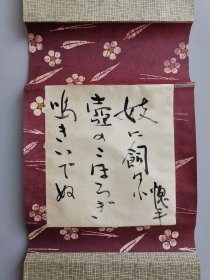 妓に飼はれ
壺のこほろぎ
鳴きいでぬ